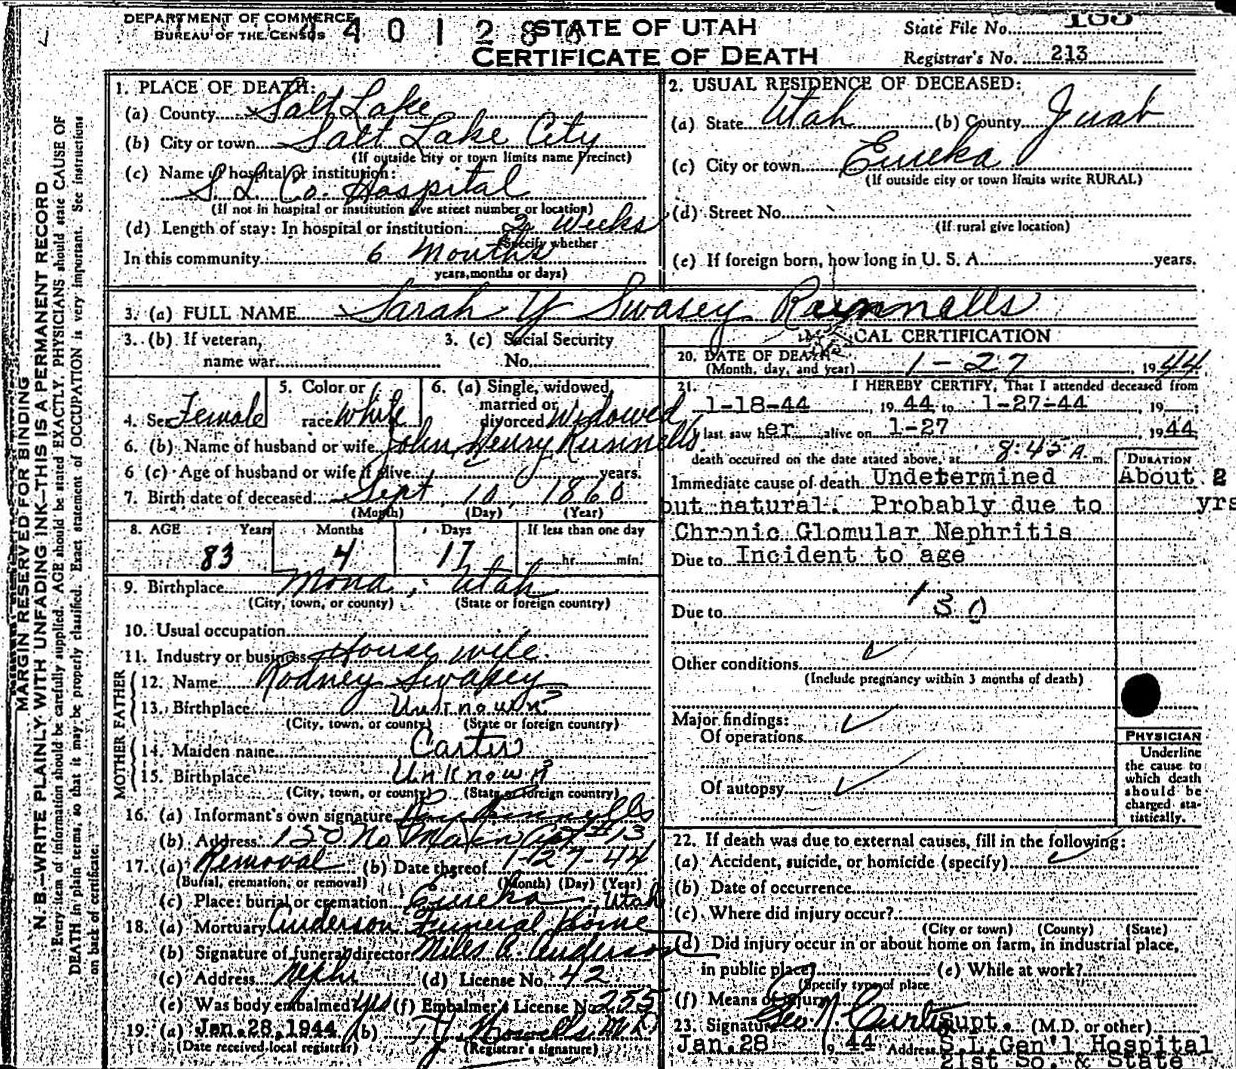 DEPARTMENT OF COMMERCE
BUREAU OF THE CENSUS
STATE OF UTAH
CERTIFICATE OF DEATH
State File No.
Registrar's No. 213
MARGIN RESERVED FOR BINDING
N. B.—WRITE PLAINLY WITH UNFADING INK—THIS IS A PERMANENT RECORD
Every item of information should be carefully supplied. AGE should be stated EXACTLY. PHYSICIANS should state CAUSE OF
DEATH in plain terms, so that it may be properly classified. Exact statement of OCCUPATION is very important. See instructions
on back of certificate.
1. PLACE OF DEATH:
(a) County Salt Lake
(b) City or town Salt Lake City
(If outside city or town limits name Precinct)
(c) Name of hospital or institution:
S. L. Co. Hospital
(If not in hospital or institution give street number or location)
(d) Length of stay: In hospital or institution 2 Weeks
(Specify whether
In this community 6 Months
years, months or days)
2. USUAL RESIDENCE OF DECEASED:
(a) State Utah (b) County Juab
(c) City or town Eureka
(If outside city or town limits write RURAL)
(d) Street No.
(If rural give location)
(e) If foreign born, how long in U. S. A. years.
3. (a) FULL NAME Sarah Y Swasey Runnells
3. (b) If veteran,
name war
3. (c) Social Security
No.
4. Sex Female
5. Color or
race White
6. (a) Single, widowed,
married or
divorced Widowed
6. (b) Name of husband or wife John Henry Runnells
6 (c) Age of husband or wife if alive years.
7. Birth date of deceased Sept 10 1860
(Month) (Day) (Year)
8. AGE Years Months Days If less than one day
83 4 17 hr. min.
9. Birthplace Mona, Utah
(City, town, or county) (State or foreign country)
10. Usual occupation
11. Industry or business House wife
FATHER
12. Name Rodney Swasey
13. Birthplace Unknown
(City, town, or county) (State or foreign country)
MOTHER
14. Maiden name Carter
15. Birthplace Unknown
(City, town, or county) (State or foreign country)
16. (a) Informant's own signature Runnells
(b) Address 150 No Main Apt #13
17. (a) Removal (b) Date thereof 1-27-44
(Burial, cremation, or removal) (Month) (Day) (Year)
(c) Place: burial or cremation Eureka, Utah
18. (a) Mortuary Anderson Funeral Home
(b) Signature of funeral director Miles A. Anderson
(c) Address Nephi (d) License No. 42
(e) Was body embalmed yes (f) Embalmer's License No. 255
19. (a) Jan. 28, 1944 (b) Howells M.D.
(Date received local registrar) (Registrar's signature)
MEDICAL CERTIFICATION
20. DATE OF DEATH
(Month, day, and year) 1-27, 1944
21. I HEREBY CERTIFY, That I attended deceased from
1-18-44 1944 to 1-27-44, 19
last saw her alive on 1-27 1944
death occurred on the date stated above, at 8:45 A. m.
DURATION
Immediate cause of death Undetermined About 2
but natural. Probably due to yrs
Chronic Glomular Nephritis
Due to Incident to age
Due to 130
Other conditions
(Include pregnancy within 3 months of death)
Major findings:
Of operations
Of autopsy
PHYSICIAN
Underline
the cause to
which death
should be
charged sta-
tistically.
22. If death was due to external causes, fill in the following:
(a) Accident, suicide, or homicide (specify)
(b) Date of occurrence
(c) Where did injury occur?
(City or town) (County) (State)
(d) Did injury occur in or about home on farm, in industrial place,
in public place? (e) While at work?
(Specify type of place
(f) Means of injury
23. Signature Geo N Curtis Supt. (M.D. or other)
Jan. 28 1944 Address S. L. Gen'l Hospital
21st So. & State